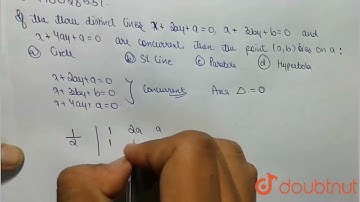 If the three distinct lines x + 2ay + a = 0, x + 3by + b = 0 and
x + 4ay + a = 0 are concurrent, then the point (a, b) lies on a :
(a) Circle (b) St Line (c) Parabola (d) Hyperbola
x + 2ay + a = 0
x + 3by + b = 0
x + 4ay + a = 0
} Concurrent Area Δ = 0
1/2 | 1 2a a
1
doubtnut